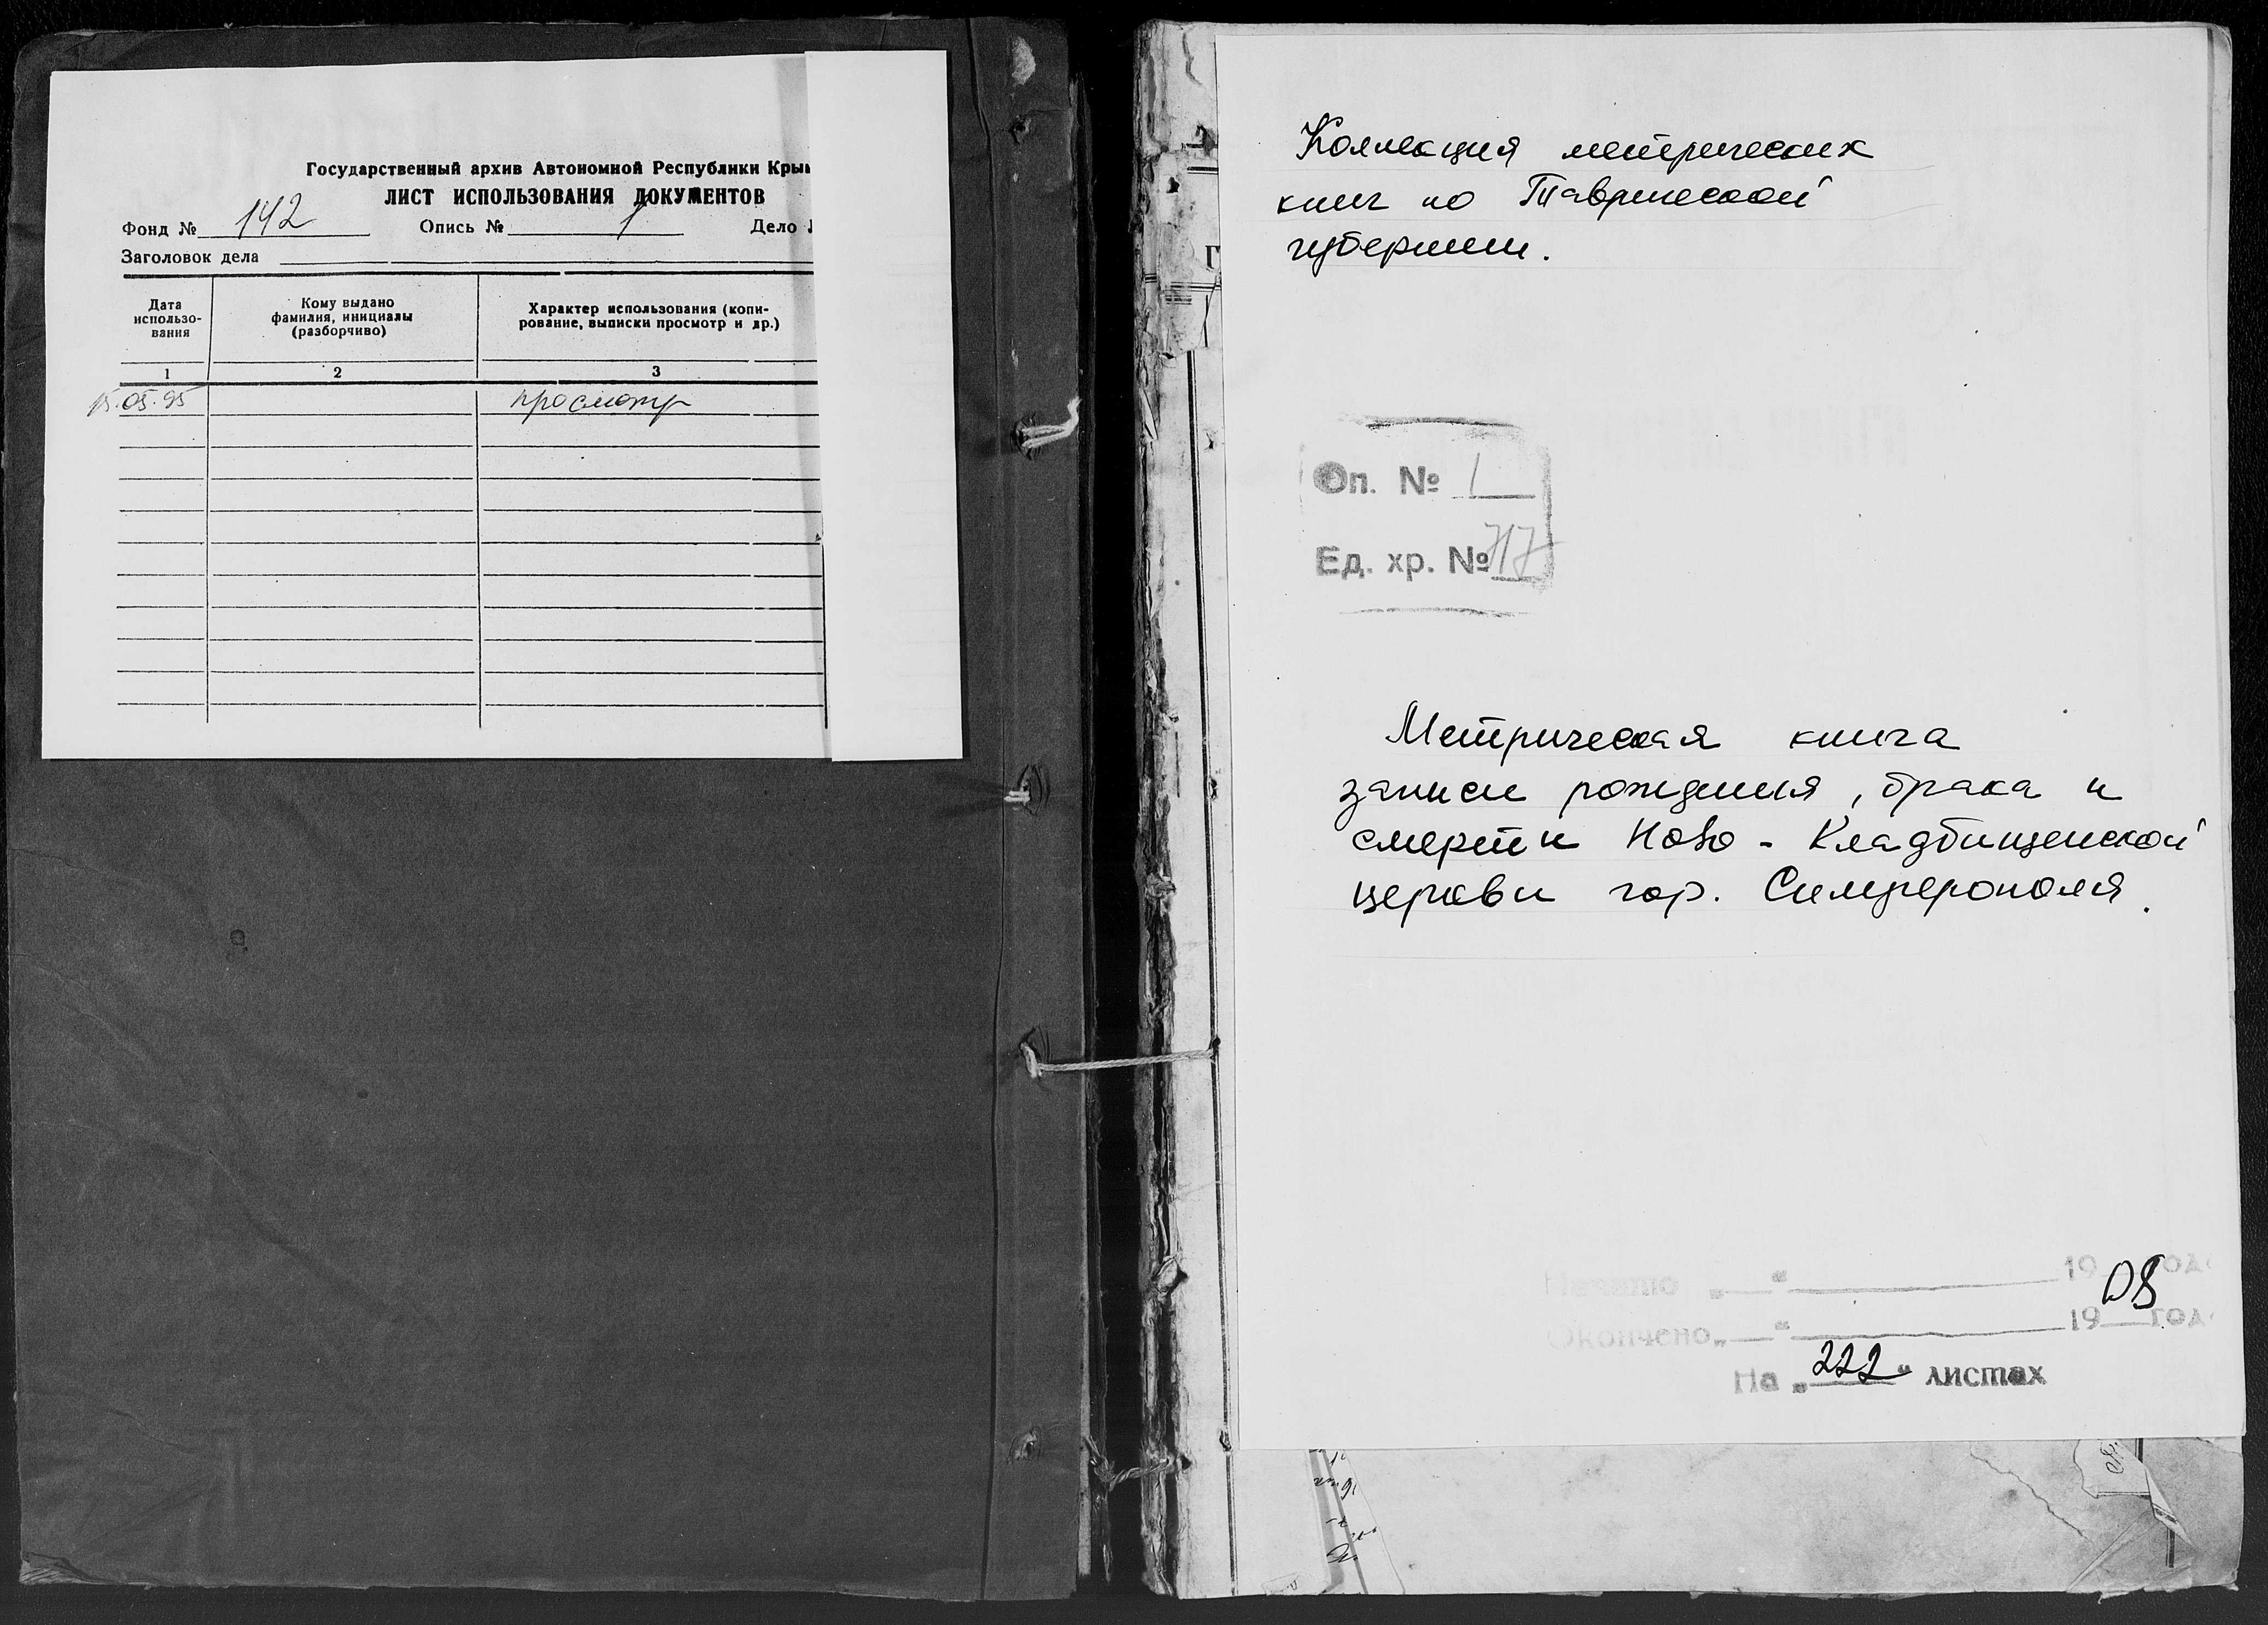 Государственный архив Автономной Республики Кры
ЛИСТ ИСПОЛЬЗОВАНИЯ ДОКУМЕНТОВ
Фонд № 142 Опись № 1 Дело
Заголовок дела
Дата использо-вания
Кому выдано
фамилия, инициалы
(разборчиво)
Характер использования (копи-
рование, выписки просмотр и др.)
1 2 3
15.05.95 просмотр
Коллекция метрических
книг по Таврической
губернии.
Оп. № 1
Ед. хр. № 717
Метрическая книга
записи рождения, брака и
смерти Ново - Кладбищенской
церкви гор. Симферополя.
Начато „ “ 19 года
08
Окончено „ “ 19 года
На „222“ листах